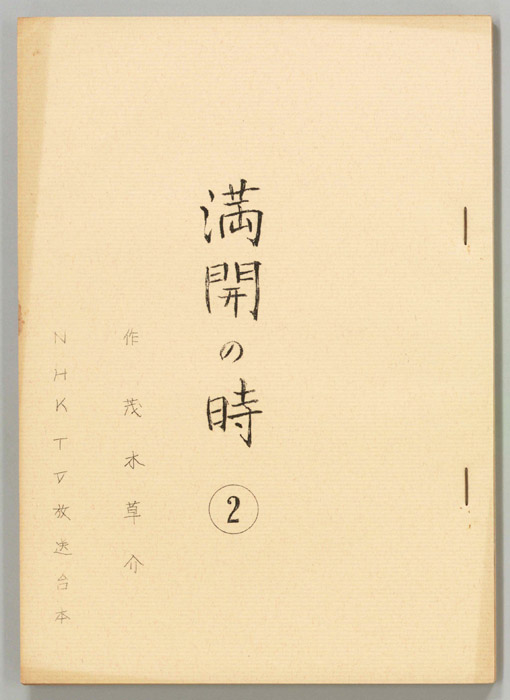 満開の時 ②
作 茂木草介
NHKTV放送台本